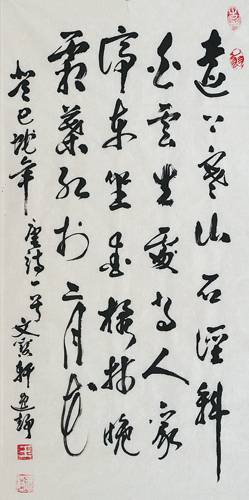 遠上寒山石徑斜
白雲生處有人家
停車坐愛楓林晚
霜葉紅於二月花
癸巳 年 唐詩一首 文 軒